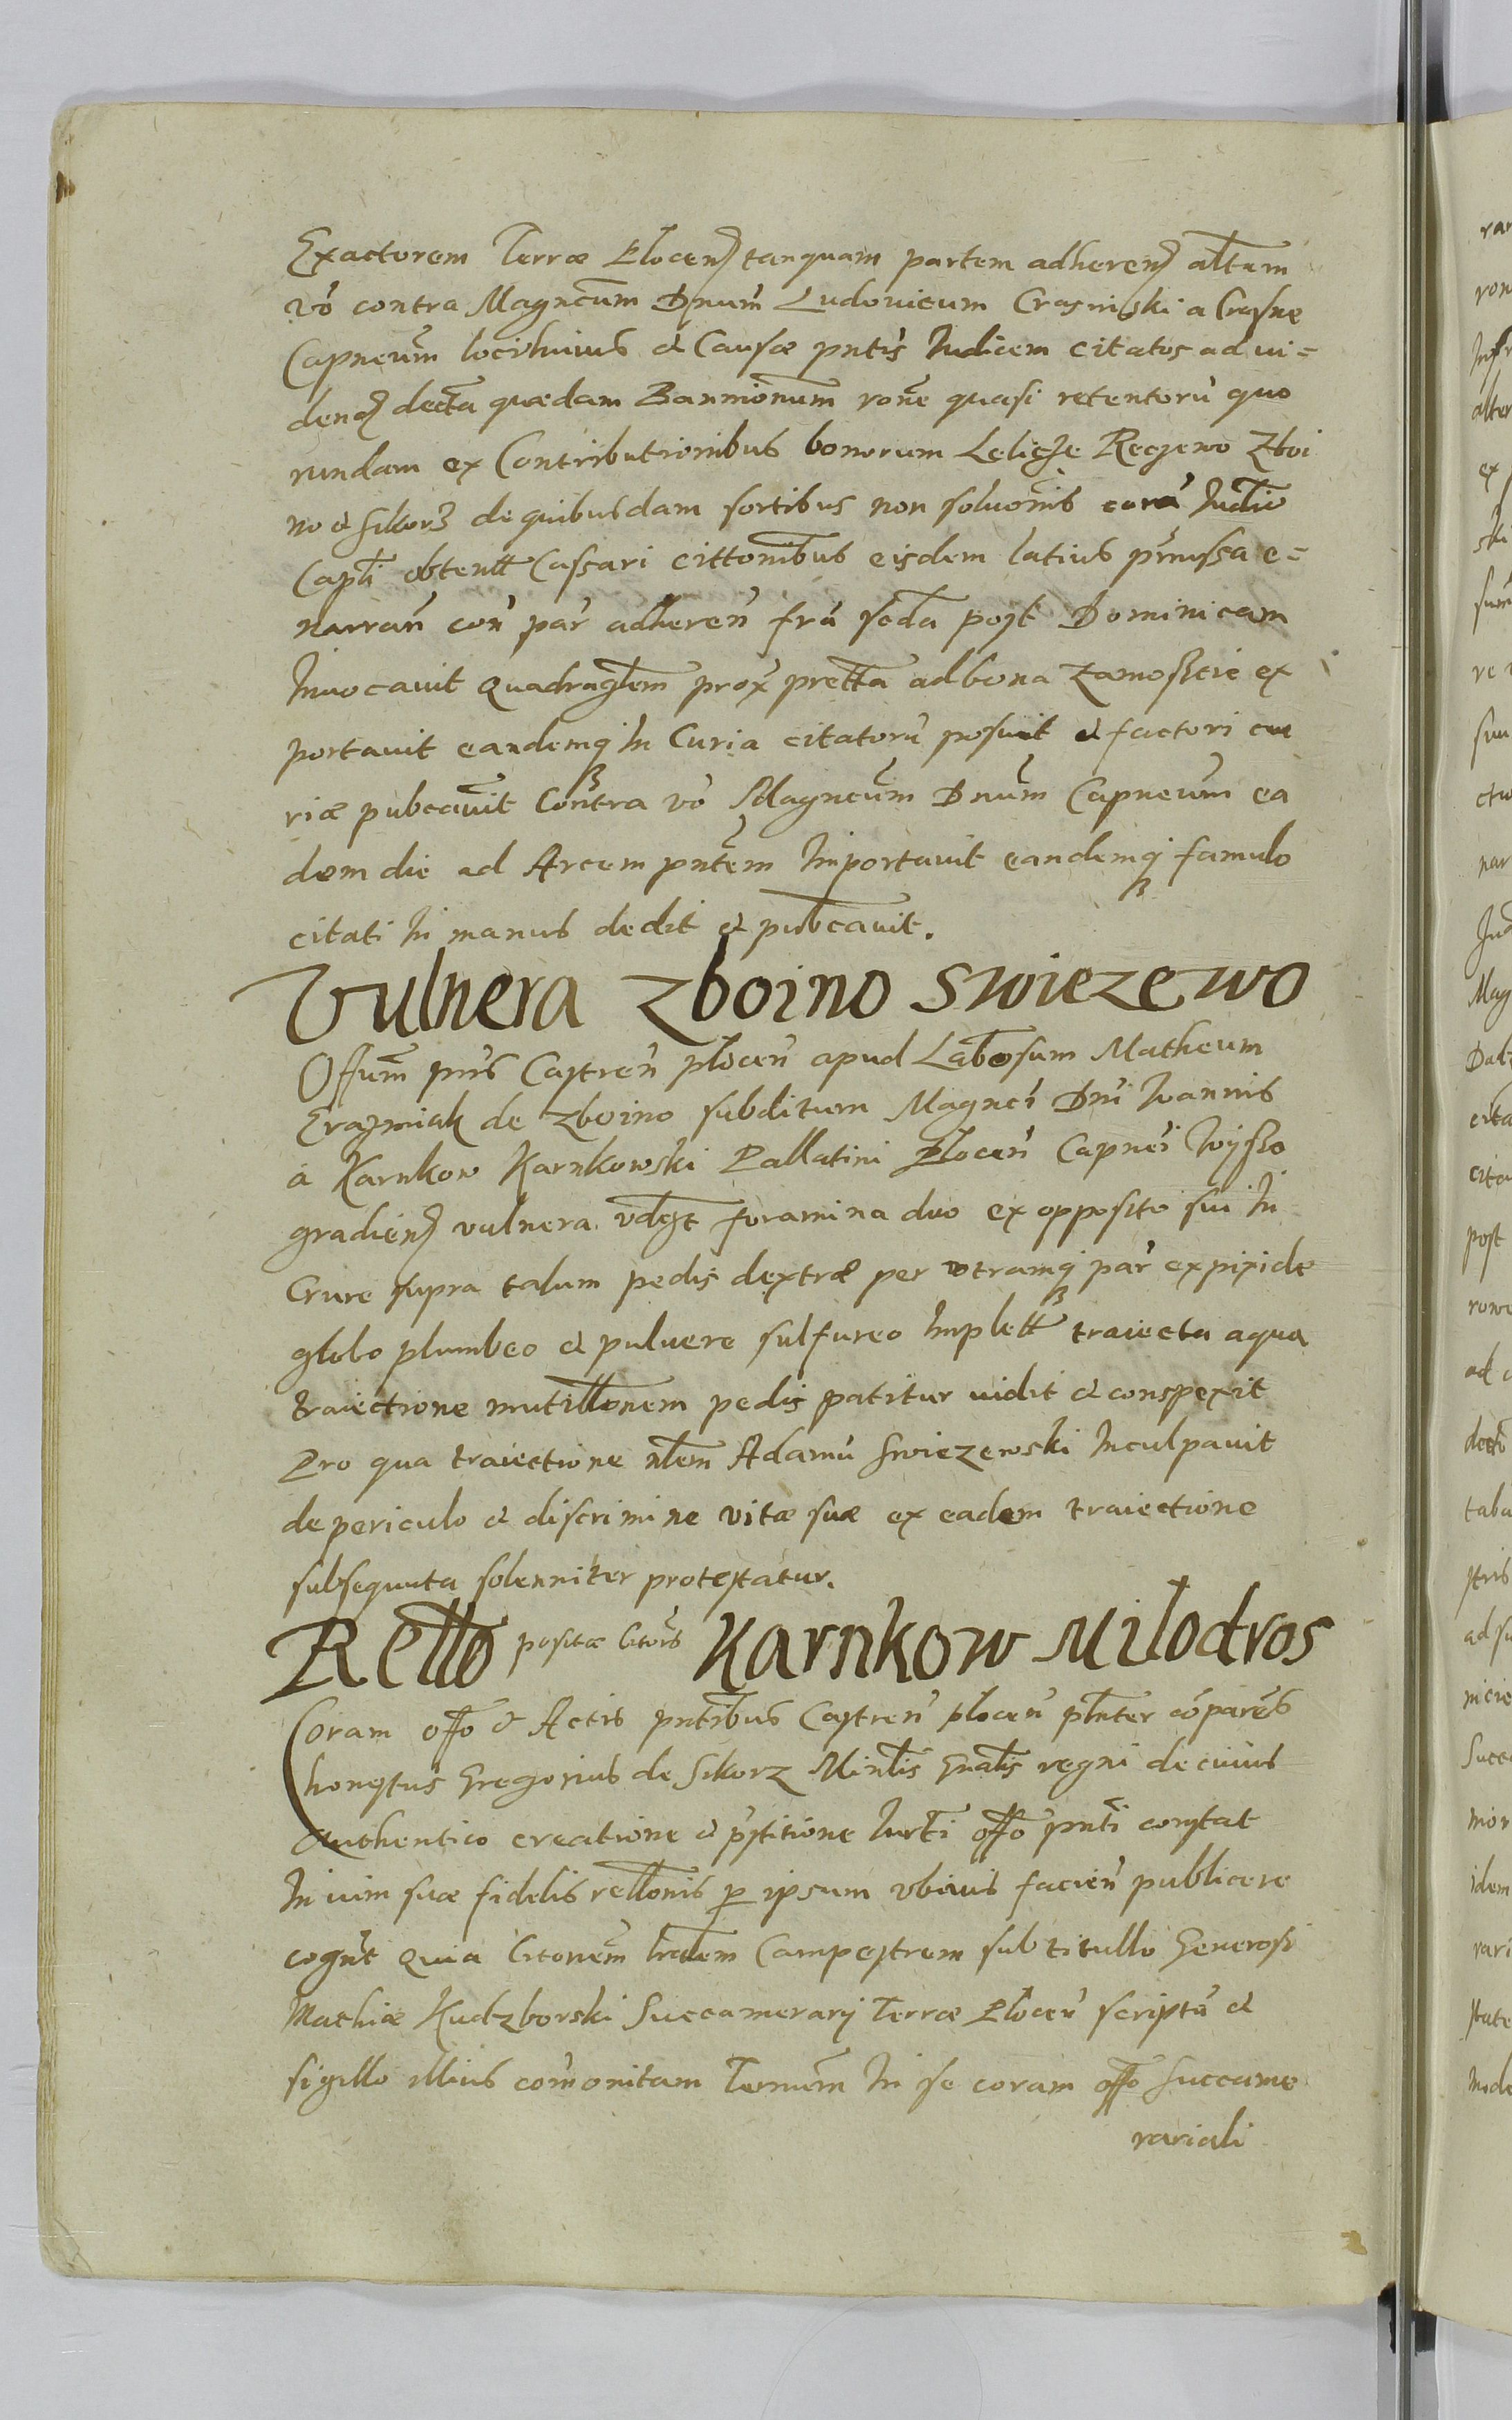 Exactorem Terræ Plocen tanquam partem adheren altum
vo contra Magncum Dnum Ludouicum Crasniski a Crasne
Capneum loci huius et Causæ pntis Iudicem citatos ad ui=
den decta quædam Bannionum rone quasi retentoru quo
rundam ex Contributionibus bonorum Lelicze Reczewo Zboi
no et Sikorz de quibusdam sortibus non soluonis cora Iudio
Capli obtentt Cassari cittonibus eisdem latius prmissa e=
narran con par adheren fra scda post Dominicam
Inuocauit Quadraglem prox pretta ad bona Zamoscie ex
portauit eandemq In Curia citatoru posuit et factori cu
riæ pubcauit Contra vo Magncum Dnum Capneum ea
dem die ad Arcem pntem Importauit eandemq famulo
citati In manus dedit et pubcauit.
Vulnera Zboino Swiezewo
Offum pns Castren plocen apud Labosum Matheum
Erazmiak de Zboino subditum Magnci Dni Ioannis
a Karnkow Karnkowski Pallatini Plocen Capnei Wyszo
gradien vulnera vdgt foramina duo ex opposito sui In
Crure supra talum pedis dextræ per vtramq par ex pixide
globo plumbeo et puluere sulfureo Implett traiecta a qua
traiectione mutillonem pedis patitur uidit et conspexit
Pro qua traiectione nlem Adamu Swiezewski Inculpauit
de periculo et discrimine vitæ suæ ex eadem traiectione
subsequuta solenniter protestatur.
Rello positæ Citons Karnkow Milodros
Coram offo et Actis pntibus Castren plocen plnter compares
honestus Gregorius de Sikorz Minlis Gnalis regni de cuius
Authentico creatione et pstitione Iurti offo pnti constat
In uim suæ fidelis rellonis p ipsum vbiuis facien publicere
cognt Quia Citonem lralem Campestrem sub titullo Generosi
Mathiæ Kudzborski Succamerarij Terræ Plocen scriptu et
sigillo illius comonitam Ternum In se coram offo Succame
rariali